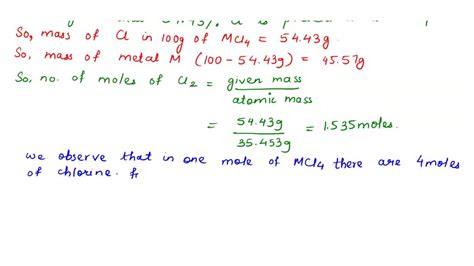 So, mass of Cl in 100g of MCl4 = 54.43g
So, mass of metal M (100 - 54.43g) = 45.57g
So, no. of moles of Cl2 = given mass
atomic mass
= 54.43g
35.453g
= 1.535 moles.
we observe that in one mole of MCl4 there are 4 moles
of chlorine. fr